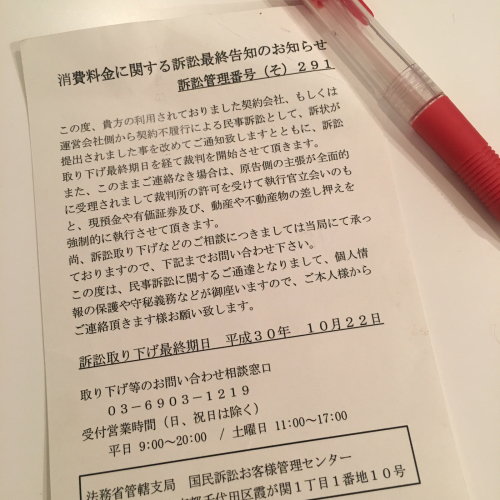 消費料金に関する訴訟最終告知のお知らせ
訴訟管理番号(そ)291
この度、貴方の利用されておりました契約会社、もしくは
運営会社側から契約不履行による民事訴訟として、訴状が
提出されました事を改めてご通知致しますとともに、訴訟
取り下げ最終期日を経て裁判を開始させて頂きます。
また、このままご連絡なき場合は、原告側の主張が全面的
に受理されまして裁判所の許可を受けて執行官立会いのも
と、現預金や有価証券及び、動産や不動産物の差し押えを
強制的に執行させて頂きます。
尚、訴訟取り下げなどのご相談につきましては当局にて承っ
ておりますので、下記までお問い合わせ下さい。
この度は、民事訴訟に関するご通達となりまして、個人情
報の保護や守秘義務などが御座いますので、ご本人様から
ご連絡頂きます様お願い致します。
訴訟取り下げ最終期日 平成30年 10月22日
取り下げ等のお問い合わせ相談窓口
03-6903-1219
受付営業時間(日、祝日は除く)
平日 9:00~20:00 / 土曜日 11:00~17:00
法務省管轄支局 国民訴訟お客様管理センター
千代田区霞が関1丁目1番地10号